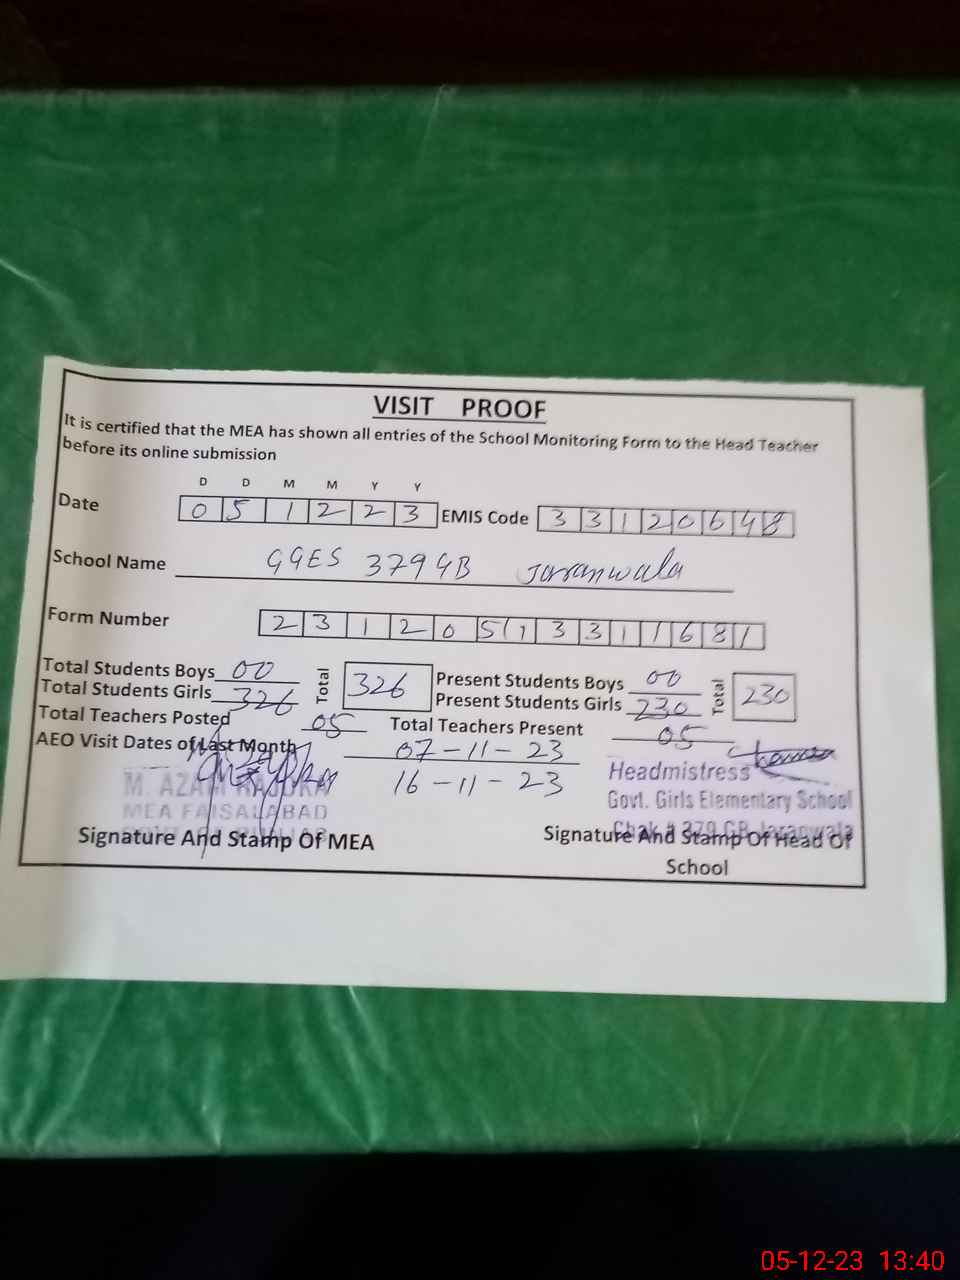 VISIT PROOF
It is certified that the MEA has shown all entries of the School Monitoring Form to the Head Teacher
before its online submission
D D M M Y Y
Date 0 5 1 2 2 3 EMIS Code 3 3 1 2 0 6 4 8
School Name GGES 379 GB Jaranwala
Form Number 2 3 1 2 0 5 1 3 3 1 1 6 8 1
Total Students Boys 00 Total 326 Present Students Boys 00 Total 230
Total Students Girls 326 Present Students Girls 230
Total Teachers Posted 05 Total Teachers Present 05
AEO Visit Dates of Last Month 07-11-23
16-11-23
M. AZAM
MEA FAISALABAD
Signature And Stamp Of MEA
Headmistress
Govt. Girls Elementary School
Chak # 379 GB Jaranwala
Signature And Stamp Of Head Of
School
05-12-23 13:40